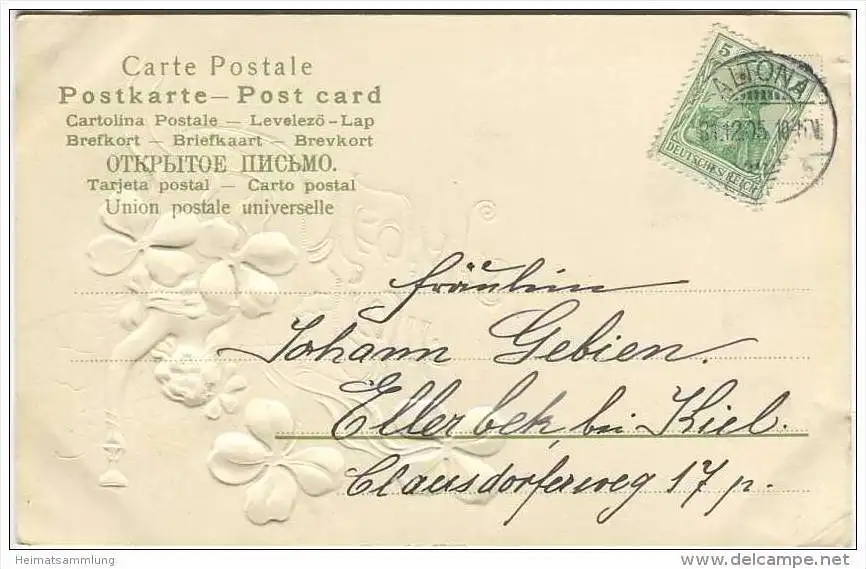 Carte Postale
Postkarte — Post card
Cartolina Postale — Levelező-Lap
Brefkort — Briefkaart — Brevkort
ОТКРЫТОЕ ПИСЬМО.
Tarjeta postal — Carto postal
Union postale universelle
5
DEUTSCHES REICH
ALTONA
31.12.05. 10-11V
Fräulein
Johann Gebien.
Ellerbek bei Kiel.
Clausdorferweg 17 p.
Heimatsammlung
delcampe.net